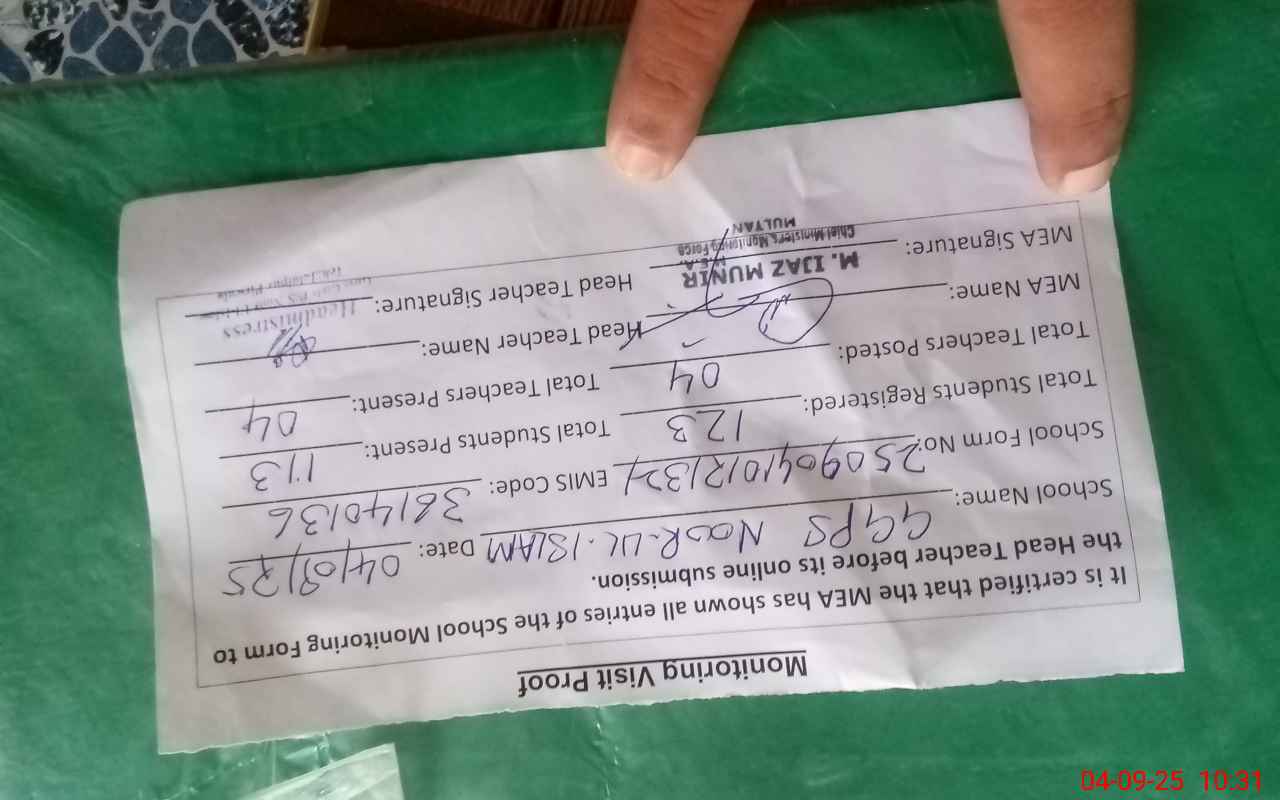 Monitoring Visit Proof
It is certified that the MEA has shown all entries of the School Monitoring Form to
the Head Teacher before its online submission.
School Name: GGPS NOOR-UL-ISLAM Date: 04/09/25
School Form No: EMIS Code: 36140136
Total Students Registered: 123 Total Students Present: 113
Total Teachers Posted: 04 Total Teachers Present: 04
MEA Name: Head Teacher Name:
MEA Signature: Head Teacher Signature:
M. IJAZ MUNIR
M.E.A.
Chief Minister's Monitoring Force
MULTAN
Headmistress
04-09-25 10:31